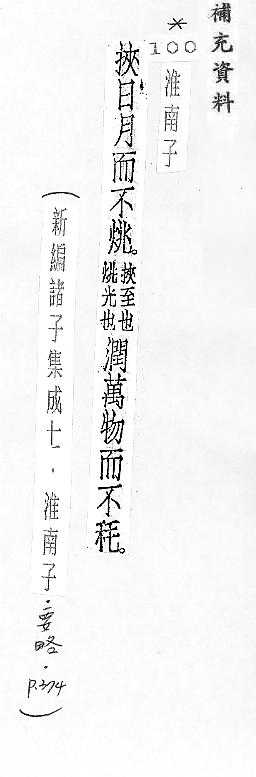 補充資料
*
100
淮南子
挾日月而不烑。挾至也烑光也潤萬物而不秏。
(新編諸子集成七．淮南子．要略．p.374)